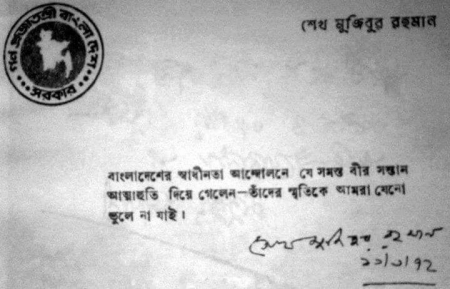 গণ প্রজাতন্ত্রী বাংলা দেশ
সরকার
শেখ মুজিবুর রহমান
বাংলাদেশের স্বাধীনতা আন্দোলনে যে সমস্ত বীর সন্তান
আত্মাহুতি দিয়ে গেলেন—তাঁদের স্মৃতিকে আমরা যেনো
ভুলে না যাই।
শেখ মুজিবুর রহমান